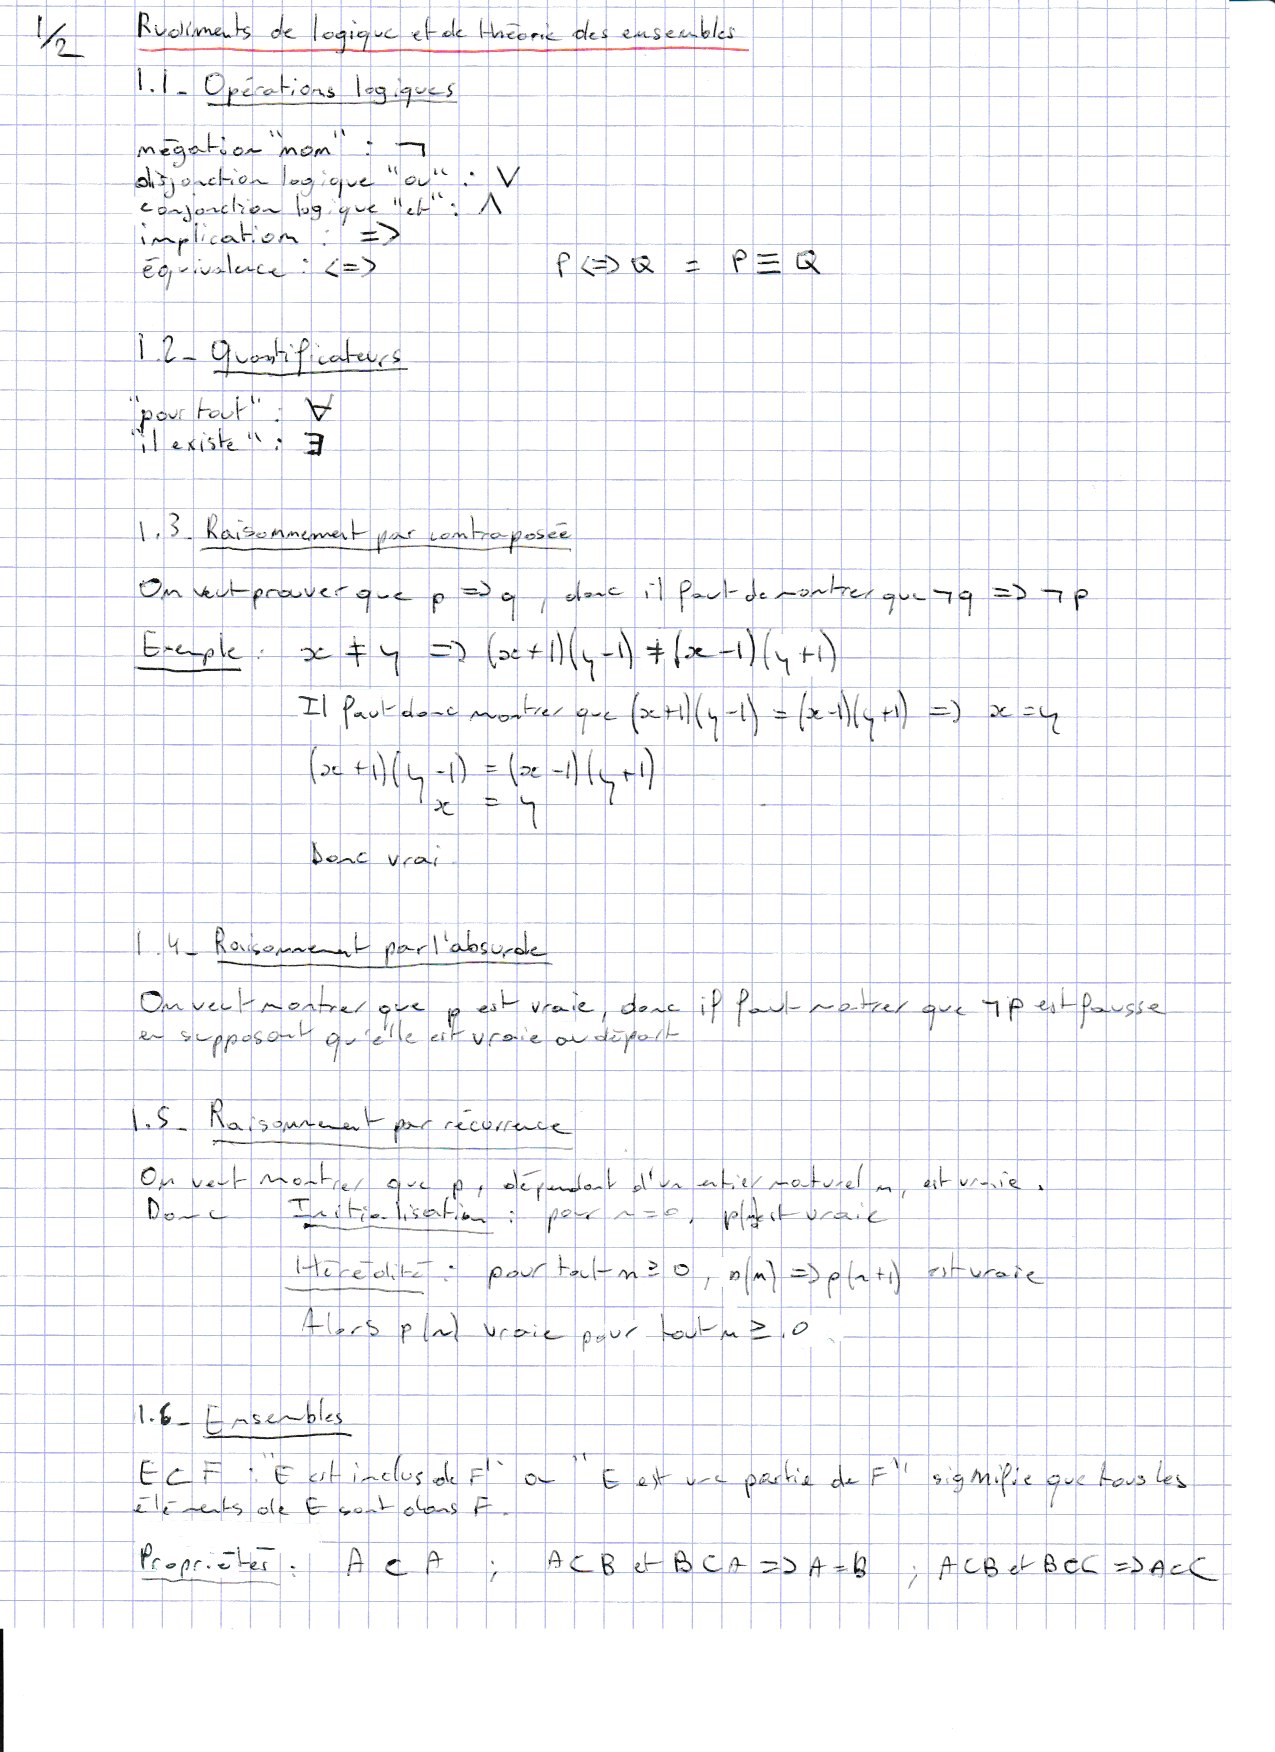 1/2
Rudiments de logique et de théorie des ensembles
1.1- Opérations logiques
négation "non" : ¬
disjonction logique "ou" : ∨
conjonction logique "et" : ∧
implication : =>
équivalence : <=> P <=> Q = P ≡ Q
1.2- Quantificateurs
"pour tout" : ∀
"il existe" : ∃
1.3- Raisonnement par contraposée
On veut prouver que p => q, donc il faut demontrer que ¬q => ¬p
Exemple : x ≠ y => (x+1)(y-1) ≠ (x-1)(y+1)
Il faut donc montrer que (x+1)(y-1) = (x-1)(y+1) => x = y
(x+1)(y-1) = (x-1)(y+1)
x = y
Donc vrai.
1.4- Raisonnement par l'absurde
On veut montrer que p est vraie, donc il faut montrer que ¬p est fausse
en supposant qu'elle est vraie au départ
1.5- Raisonnement par récurrence
On veut montrer que p, dépendant d'un entier naturel n, est vraie.
Donc Initialisation : pour n=0, p(n) est vraie
Hérédité : pour tout n ≥ 0, p(n) => p(n+1) est vraie
Alors p(n) vraie pour tout n ≥ 0
1.6- Ensembles
E ⊂ F : "E est inclus de F" ou "E est une partie de F" signifie que tous les
éléments de E sont dans F.
Propriétés : A ⊂ A ; A ⊂ B et B ⊂ A => A = B ; A ⊂ B et B ⊂ C => A ⊂ C